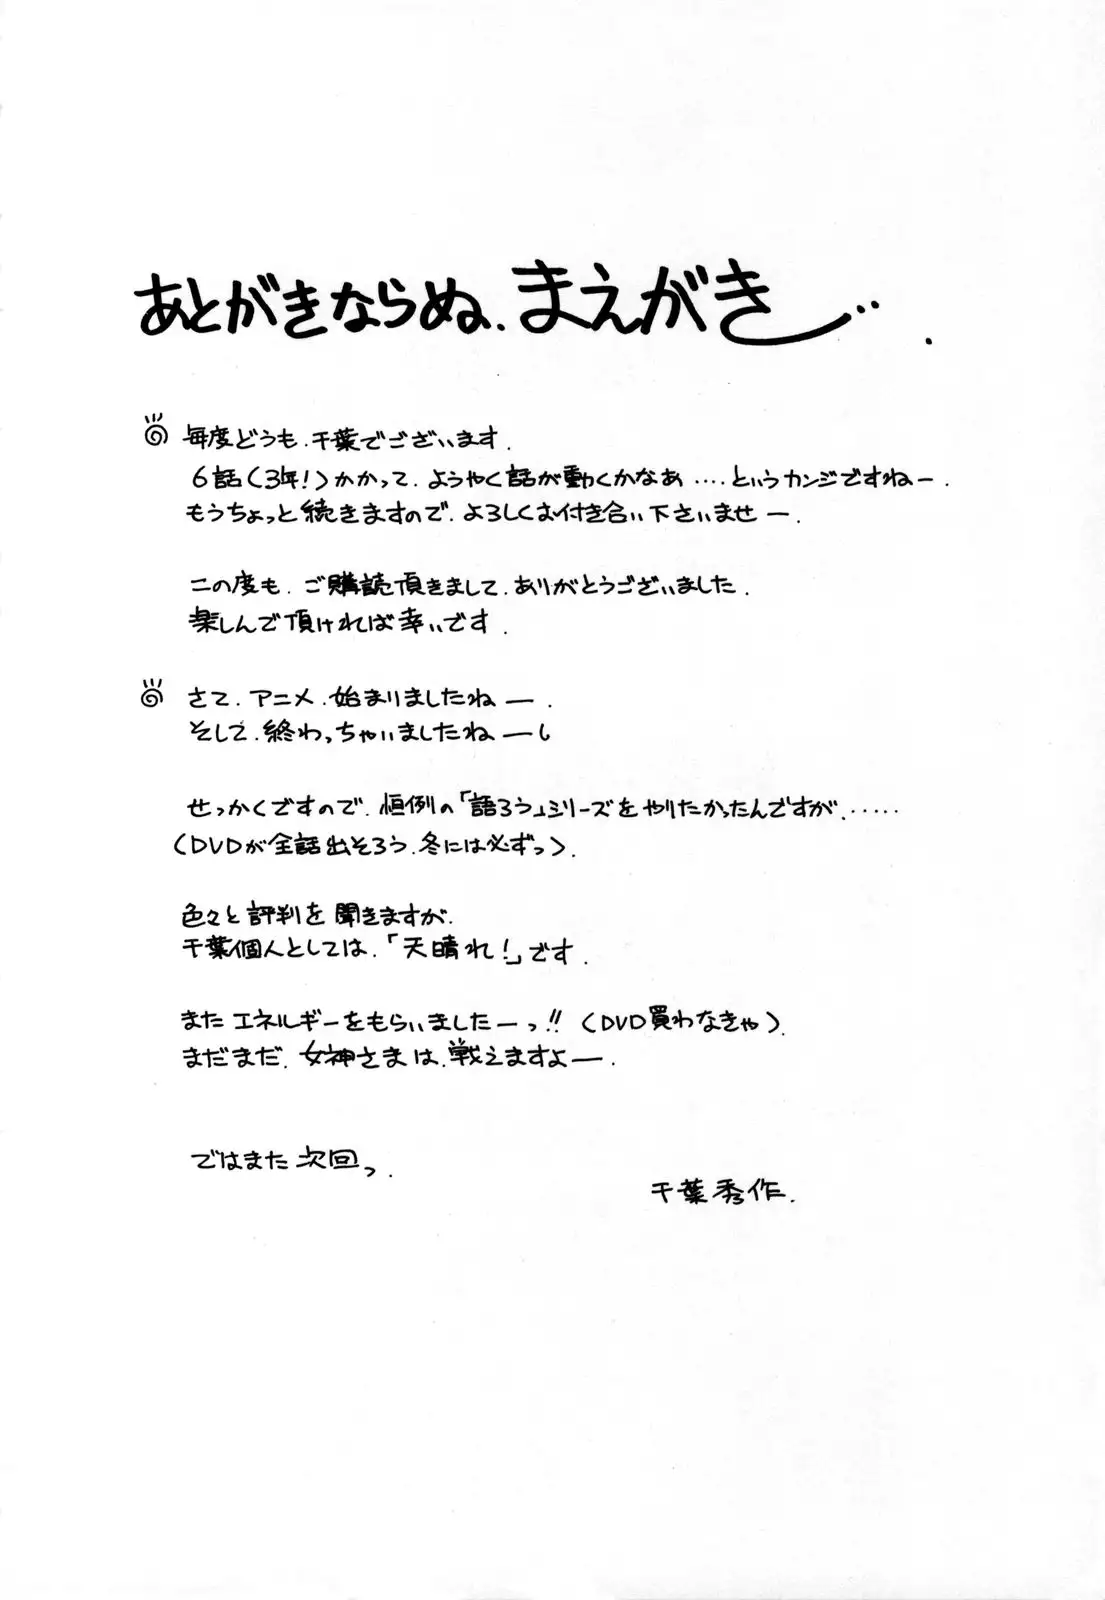 あとがきならぬ、まえがき‥.
毎度どうも.千葉でございます.
6話(3年!)かかって、ようやく話が動くかなあ‥‥というカンジですねー.
もうちょっと続きますので、よろしくお付き合い下さいませー.
この度も、ご購読頂きまして、ありがとうございました.
楽しんで頂ければ幸いです.
さて、アニメ、始まりましたねー.
そして、終わっちゃいましたねー
せっかくですので、恒例の「語ろう」シリーズをやりたかったんですが.‥‥‥
(DVDが全話出そろう、冬には必ずっ).
色々と評判を聞きますが、
千葉個人としては、「天晴れ!」です.
またエネルギーをもらいましたーっ!!(DVD買わなきゃ).
まだまだ、女神さまは、戦えますよー.
ではまた次回っ.
千葉秀作.